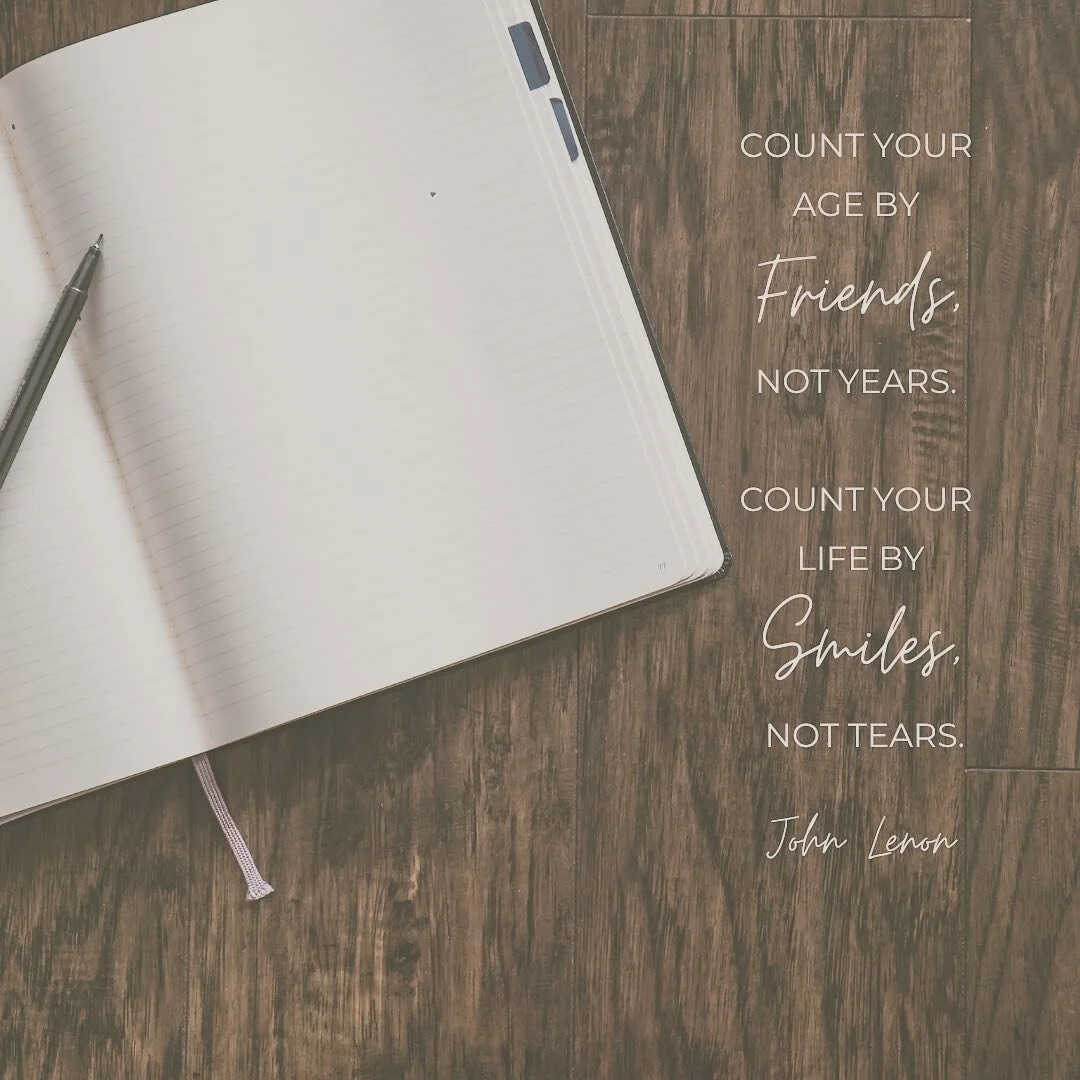 COUNT YOUR
AGE BY
Friends,
NOT YEARS.
COUNT YOUR
LIFE BY
Smiles,
NOT TEARS.
John Lenon
77